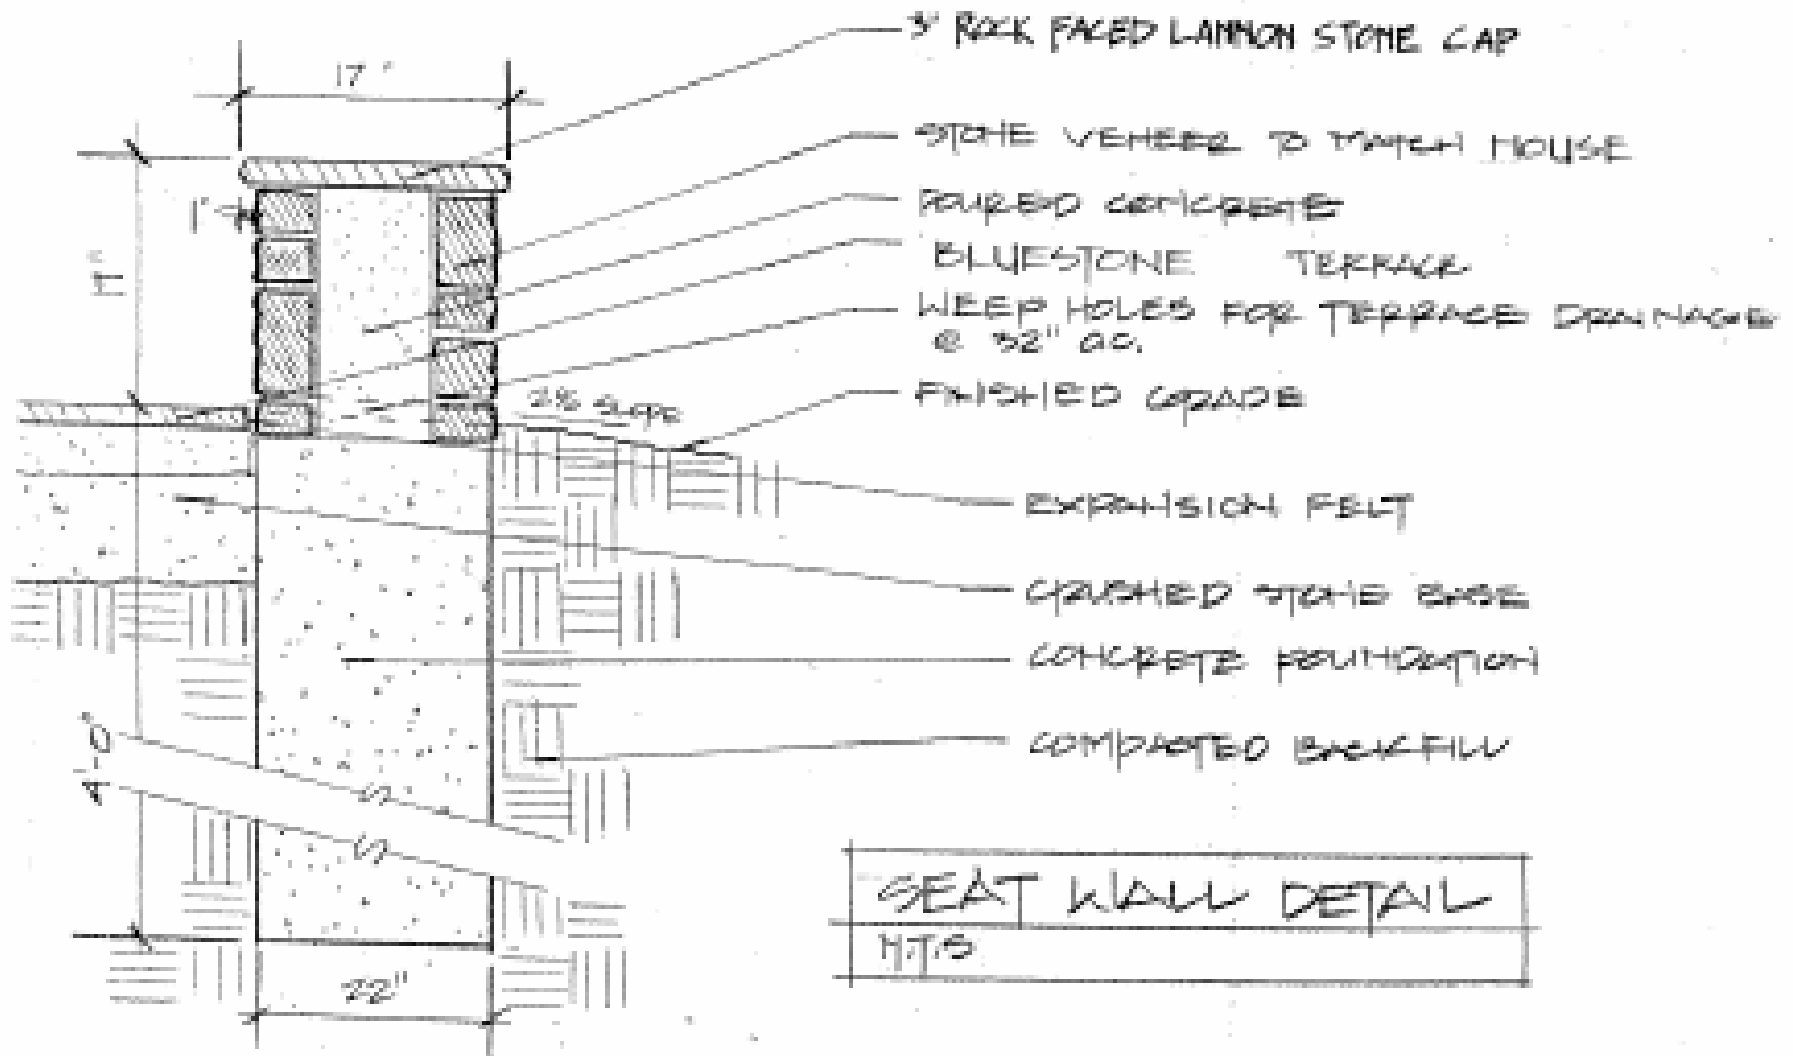 3" ROCK FACED LANNON STONE CAP
17"
STONE VENEER TO MATCH HOUSE
POURED CONCRETE
1"
BLUESTONE TERRACE
WEEP HOLES FOR TERRACE DRAINAGE
@ 32" O.C.
FINISHED GRADE
2% SLOPE
EXPANSION FELT
CRUSHED STONE BASE
CONCRETE FOUNDATION
COMPACTED BACKFILL
4'-0"
SEAT WALL DETAIL
N.T.S
22"